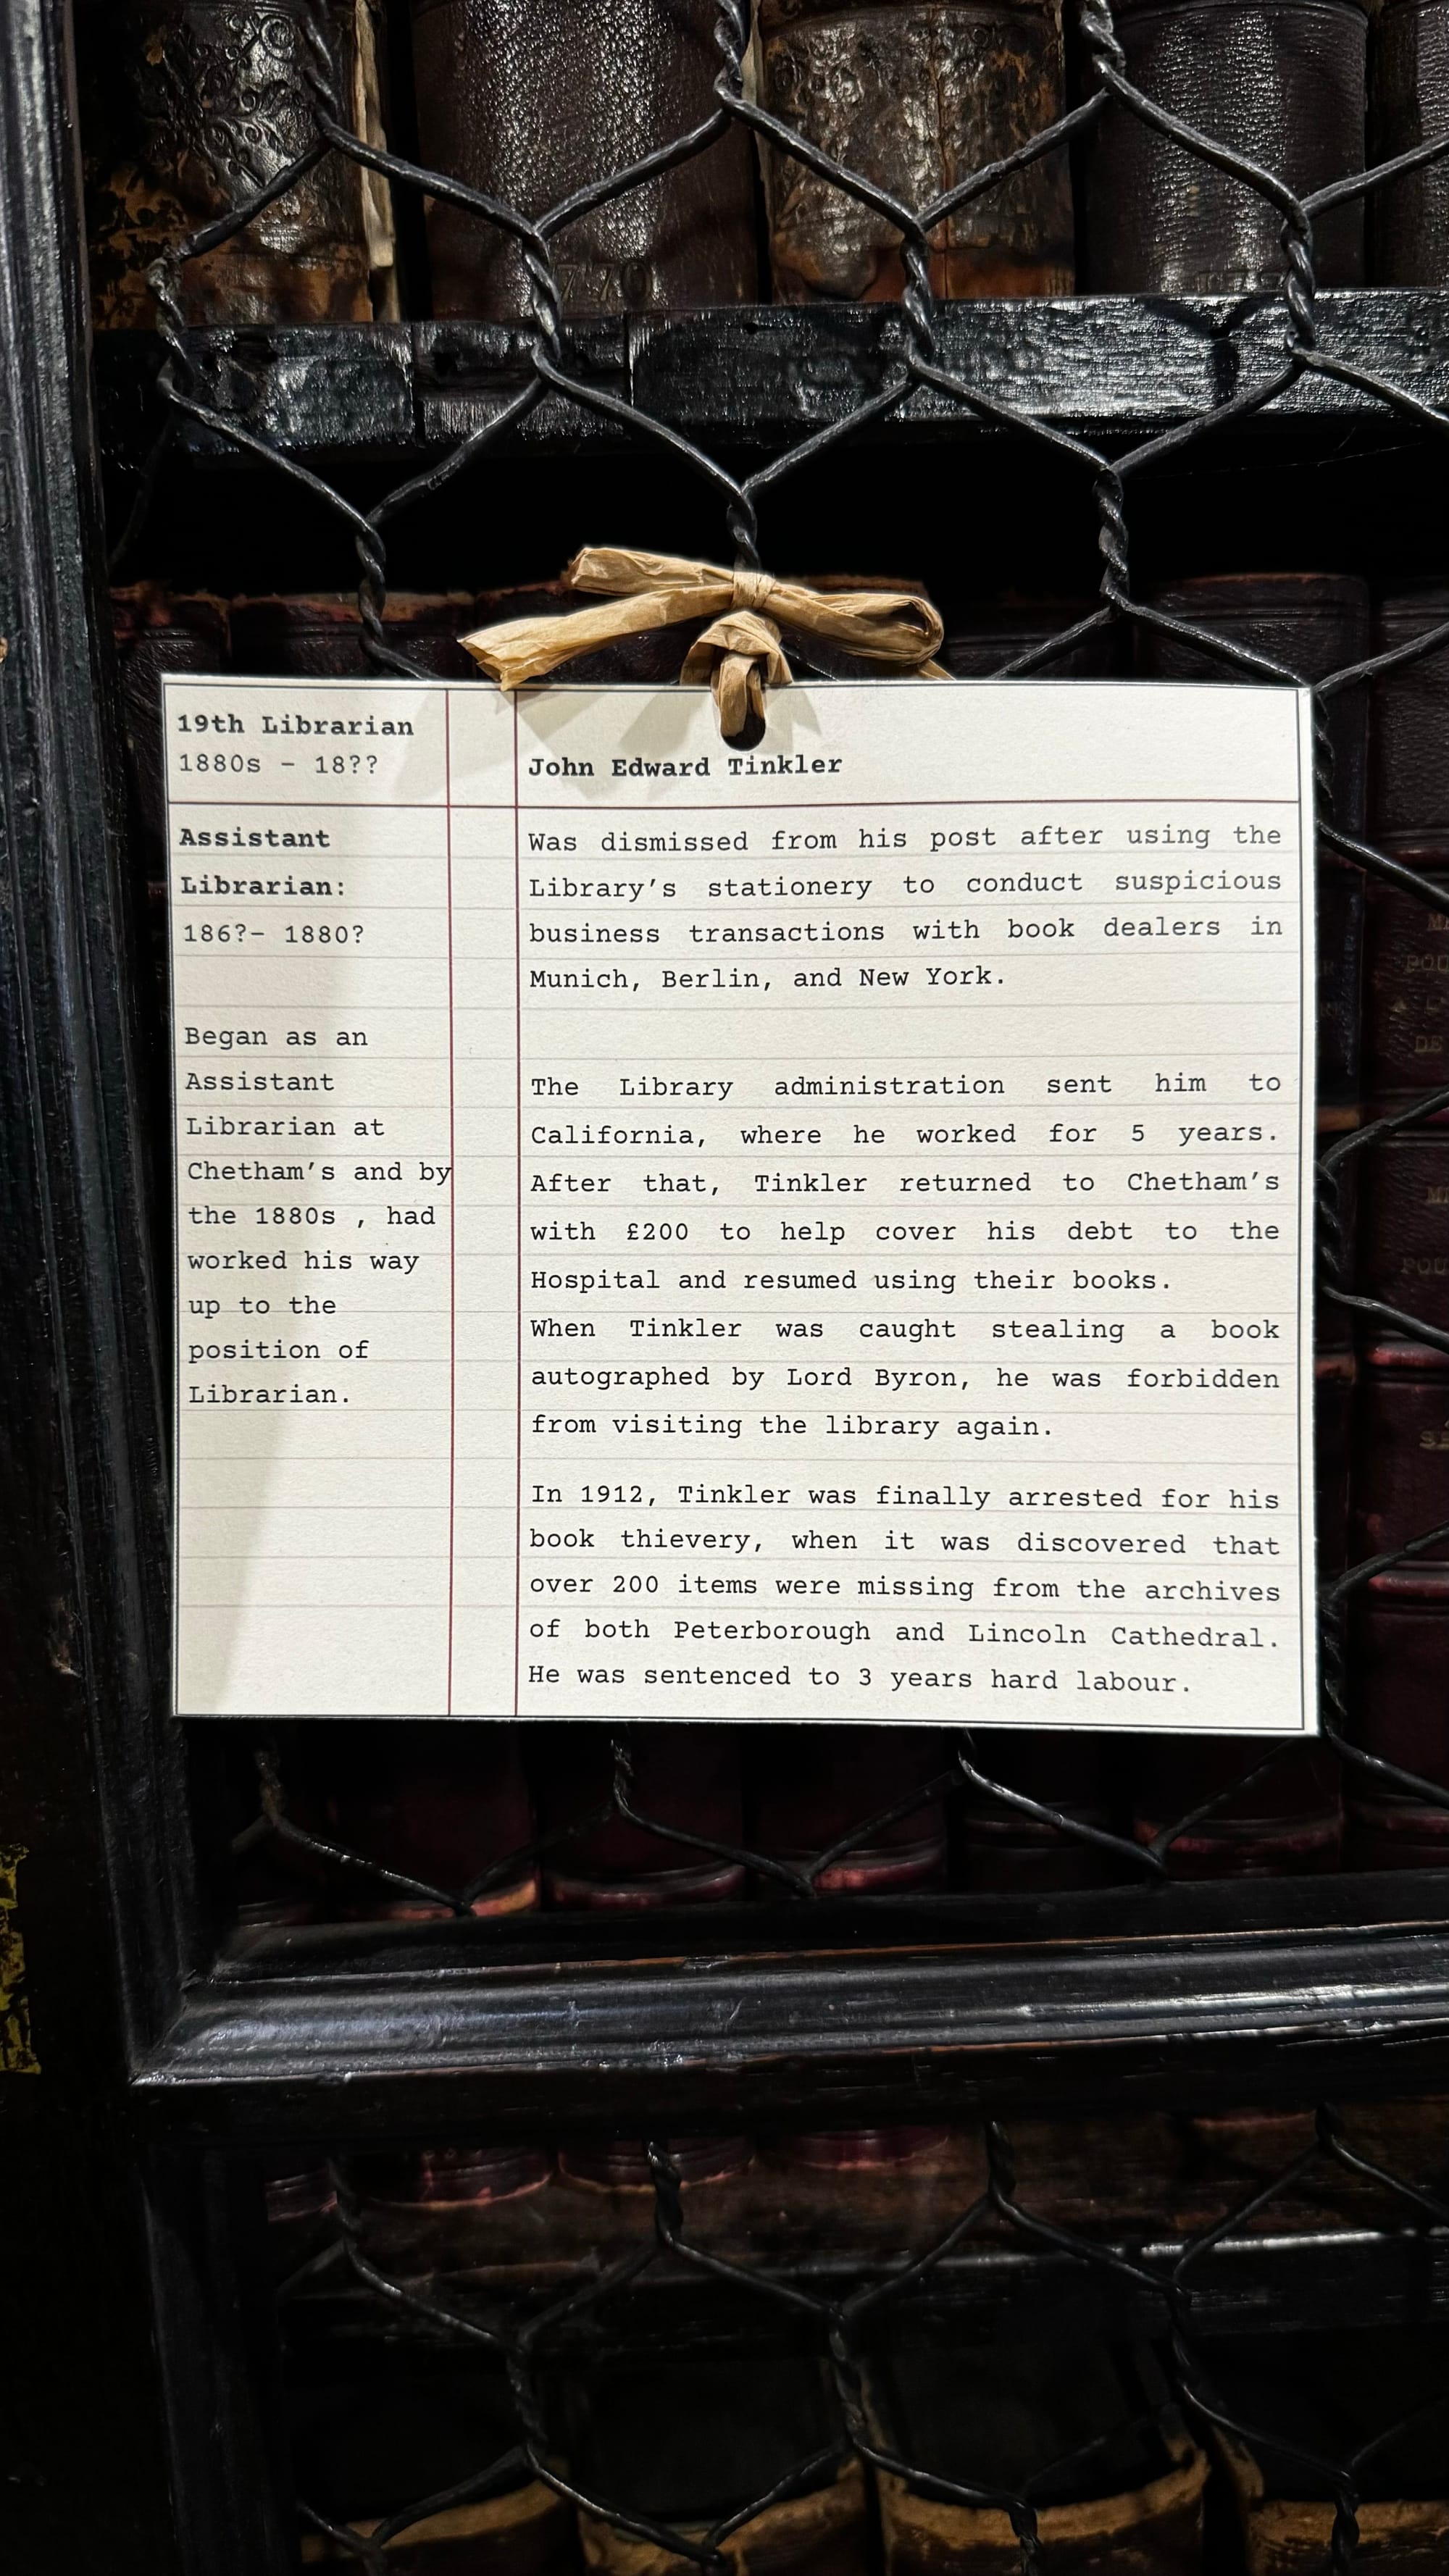 770
19th Librarian
1880s – 18??
John Edward Tinkler
Assistant
Librarian:
186?– 1880?
Began as an
Assistant
Librarian at
Chetham's and by
the 1880s , had
worked his way
up to the
position of
Librarian.
Was dismissed from his post after using the
Library's stationery to conduct suspicious
business transactions with book dealers in
Munich, Berlin, and New York.
The Library administration sent him to
California, where he worked for 5 years.
After that, Tinkler returned to Chetham's
with £200 to help cover his debt to the
Hospital and resumed using their books.
When Tinkler was caught stealing a book
autographed by Lord Byron, he was forbidden
from visiting the library again.
In 1912, Tinkler was finally arrested for his
book thievery, when it was discovered that
over 200 items were missing from the archives
of both Peterborough and Lincoln Cathedral.
He was sentenced to 3 years hard labour.
DE